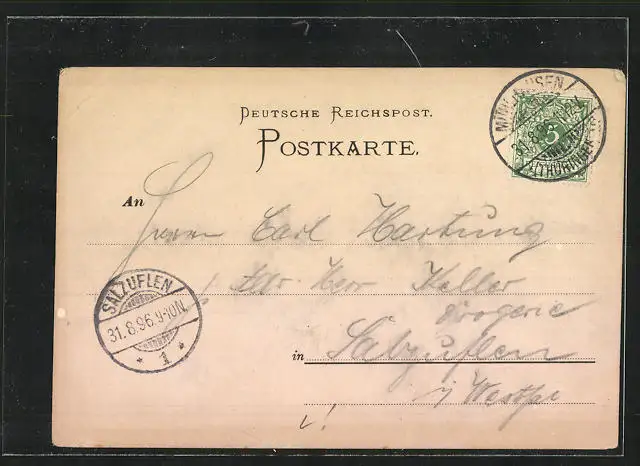 DEUTSCHE REICHSPOST.
POSTKARTE.
MÜHLHAUSEN
(THÜRINGEN)
5
An
Herrn Carl Hartung
Adr. Herr Keller
Drogerie
in Salzuflen
i/ Westf.
SALZUFLEN
31.8.96.9-10N.
* 1 *